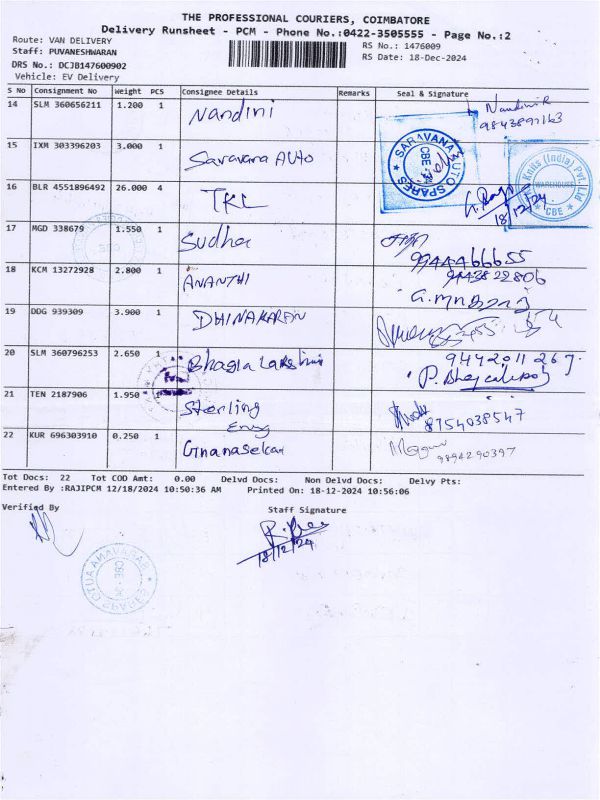 THE PROFESSIONAL COURIERS, COIMBATORE
Delivery Runsheet - PCM - Phone No.:0422-3505555 - Page No.:2
Route: VAN DELIVERY
RS No.: 1476009
Staff: PUVANESHWARAN
RS Date: 18-Dec-2024
DRS No.: DCJB147600902
Vehicle: EV Delivery
S No Consignment No Weight PCS Consignee Details Remarks Seal & Signature
14 SLM 360656211 1.200 1 Nandini Nandini R
15 IXM 303396203 3.000 1 Saravana AUTO
SARAVANA AUTO SPARES
CBE
Knits (India) Pvt. Ltd
WAREHOUSE
CBE
16 BLR 4551896492 26.000 4 TKL
18/12/24
17 MGD 338679 1.550 1 Sudha
9944466655
18 KCM 13272928 2.800 1 ANANTHI
9443822806
19 DDG 939309 3.900 1 DHINAKARAN
20 SLM 360796253 2.650 1 Bhagia Lakshmi
21 TEN 2187906 1.950 1 Sterling
8754038547
22 KUR 696303910 0.250 1 Gnanasekar
9894290397
Tot Docs: 22 Tot COD Amt: 0.00 Delvd Docs: Non Delvd Docs: Delvy Pts:
Entered By :RAJIPCM 12/18/2024 10:50:36 AM Printed On: 18-12-2024 10:56:06
Verified By Staff Signature
18/12/24
SARAVANA AUTO SPARES